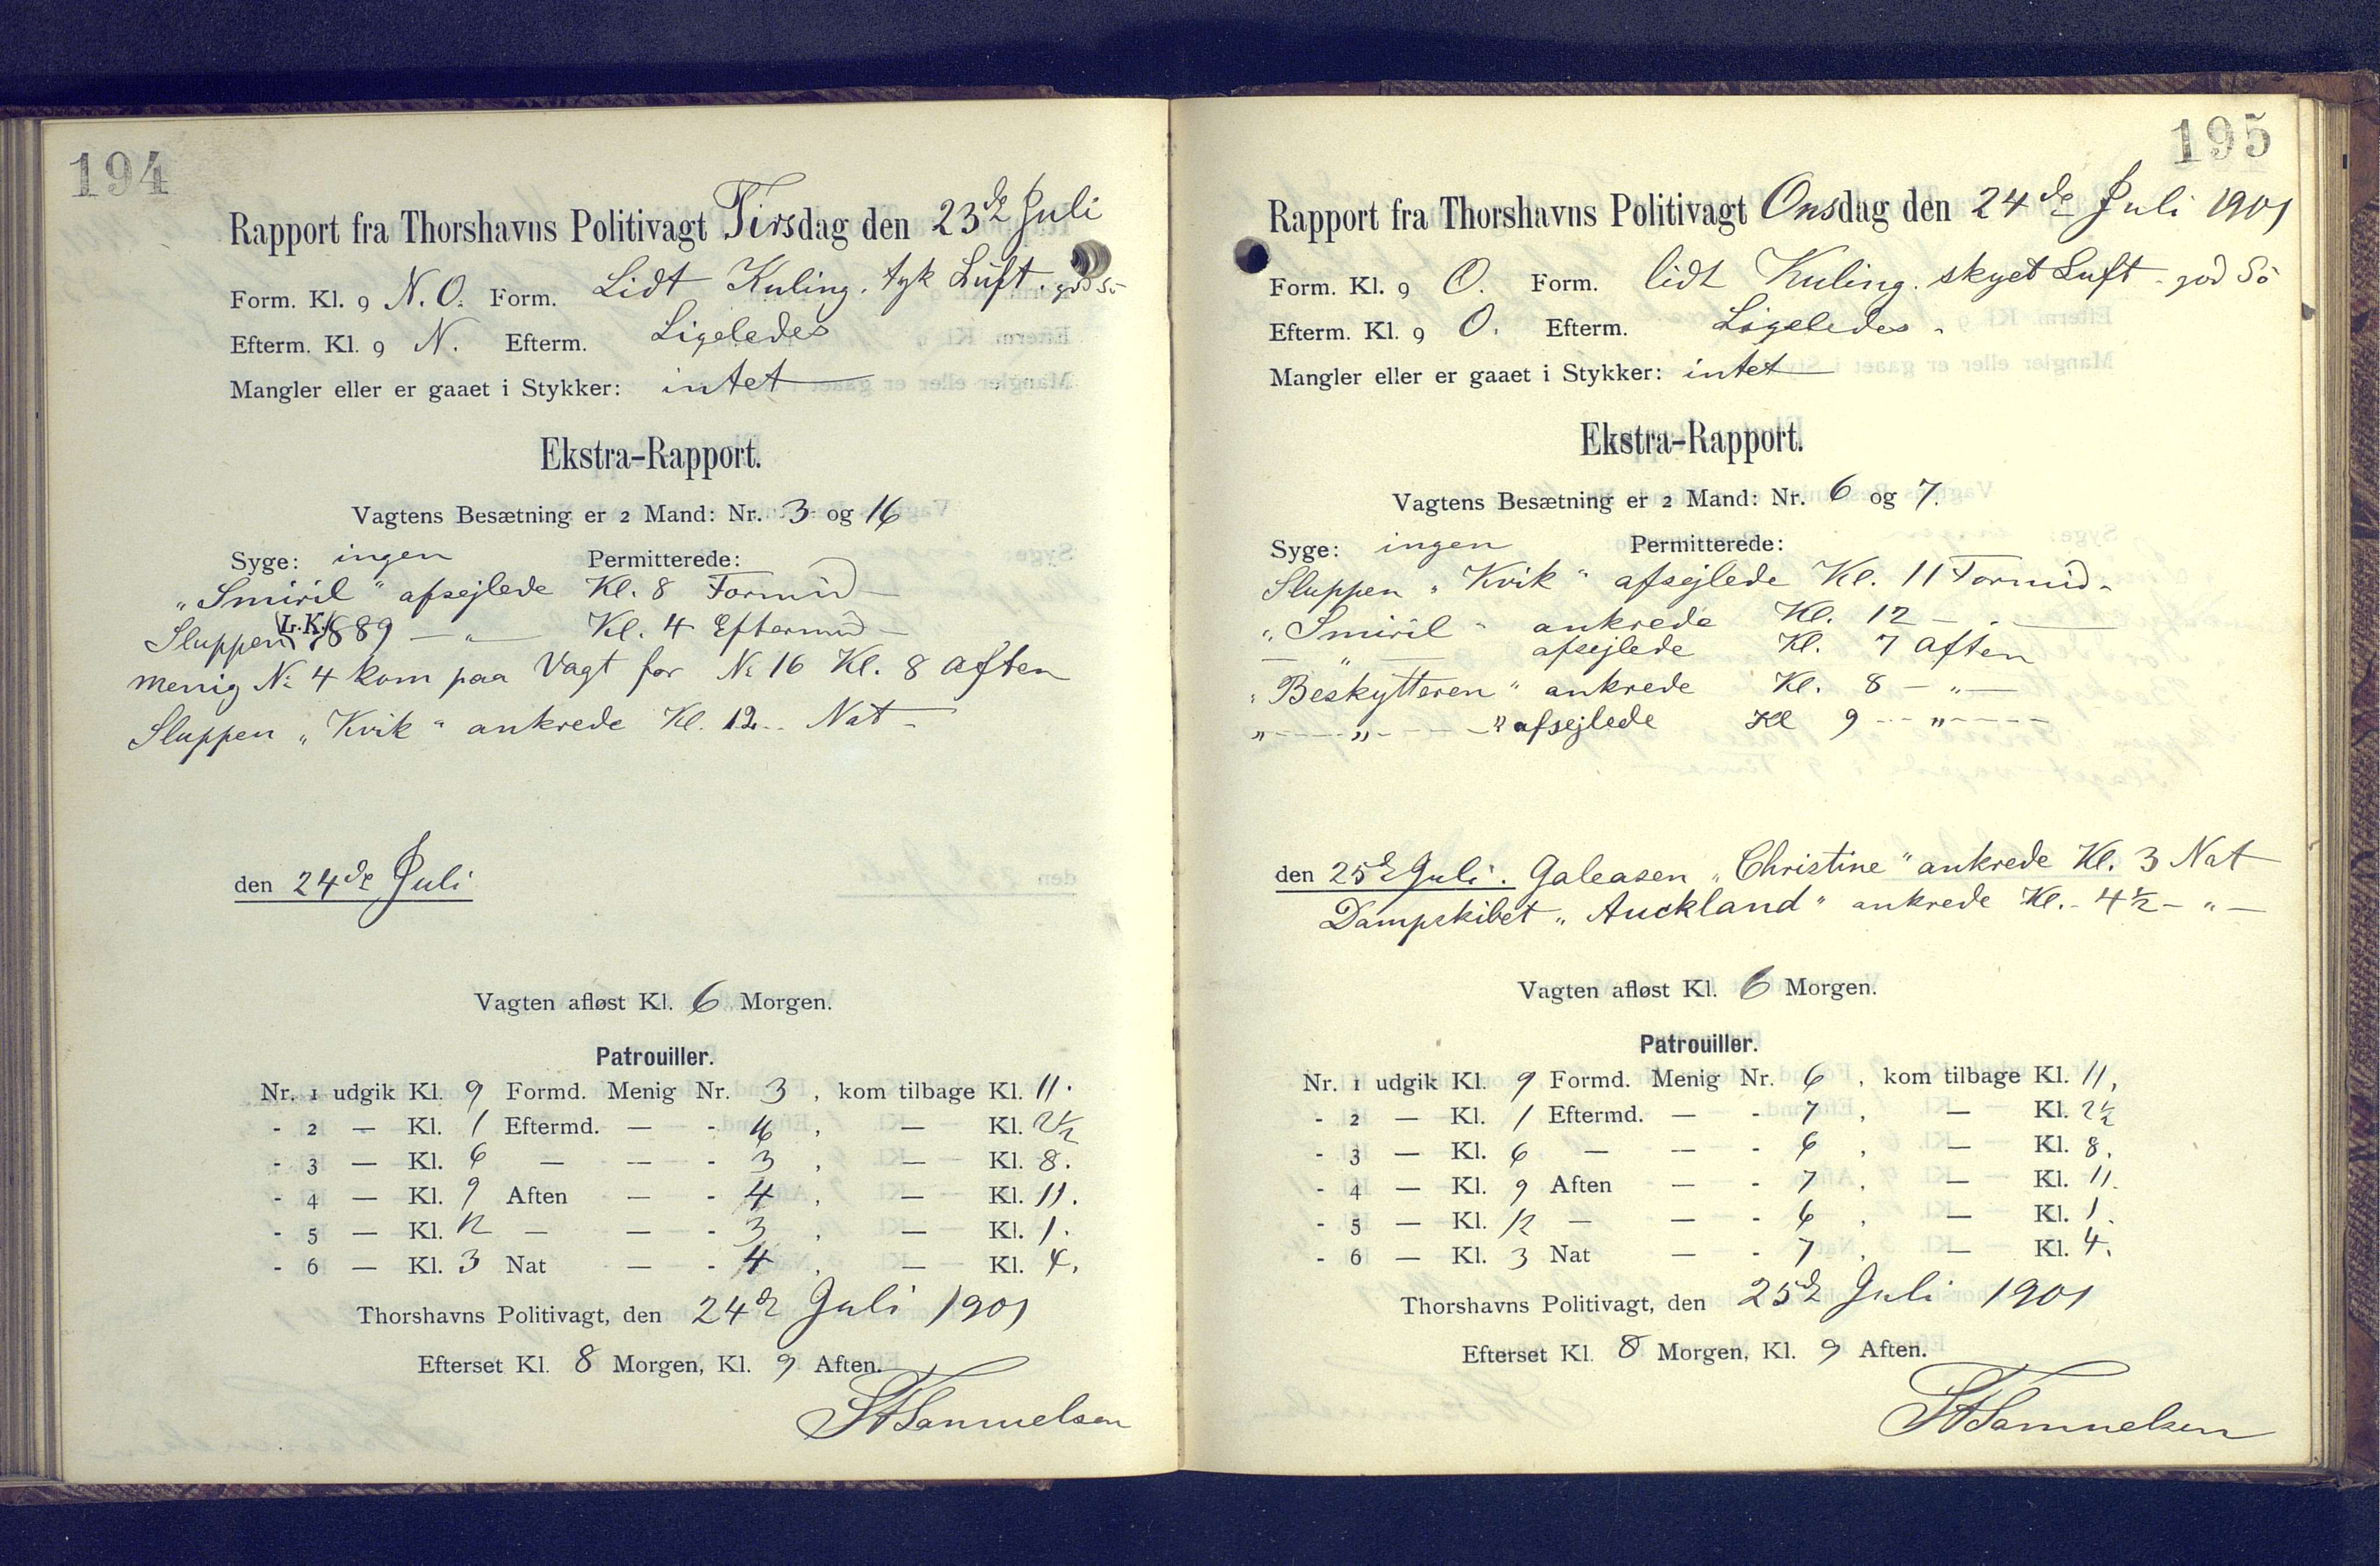 194
Rapport fra Thorshavns Politivagt Tirsdag den 23de Juli
Form. Kl. 9 N.O. Form. Lidt Kuling. tyk Luft. god Sö
Efterm. Kl. 9 N. Efterm. Ligeledes
Mangler eller er gaaet i Stykker: intet
Ekstra-Rapport.
Vagtens Besætning er 2 Mand: Nr. 3 og 16
Syge: ingen Permitterede:
"Smiril" afsejlede Kl. 8 Formid
Sluppen L.K. 889 — " — Kl. 4 Eftermid —
menig No 4 kom paa Vagt for No 16 Kl. 8 Aften
Sluppen "Kvik" ankrede Kl. 12 Nat —
den 24de Juli
Vagten afløst Kl. 6 Morgen.
Patrouiller.
Nr. 1 udgik Kl. 9 Formd. Menig Nr. 3, kom tilbage Kl. 11.
- 2 — Kl. 1 Eftermd. — - 16, — Kl. 2½
- 3 — Kl. 6 — — - 3, — Kl. 8.
- 4 — Kl. 9 Aften — - 4, — Kl. 11.
- 5 — Kl. 12 — — - 3, — Kl. 1.
- 6 — Kl. 3 Nat — - 4, — Kl. 4.
Thorshavns Politivagt, den 24de Juli 1901
Efterset Kl. 8 Morgen, Kl. 9 Aften.
Samuelsen
195
Rapport fra Thorshavns Politivagt Onsdag den 24de Juli 1901
Form. Kl. 9 O. Form. lidt Kuling. skyet Luft - god Sö
Efterm. Kl. 9 O. Efterm. Ligeledes -
Mangler eller er gaaet i Stykker: intet
Ekstra-Rapport.
Vagtens Besætning er 2 Mand: Nr. 6 og 7.
Syge: ingen Permitterede:
Sluppen "Kvik" afsejlede Kl. 11 Formid -
"Smiril" ankrede Kl. 12 — " —
— " — afsejlede Kl. 7 Aften
"Beskytteren" ankrede Kl. 8 — " —
" — " — " afsejlede Kl 9 — " —
den 25de Juli. Galeasen "Christine" ankrede Kl. 3 Nat
Dampskibet "Auckland" ankrede Kl. 4½ — " —
Vagten afløst Kl. 6 Morgen.
Patrouiller.
Nr. 1 udgik Kl. 9 Formd. Menig Nr. 6, kom tilbage Kl. 11,
- 2 — Kl. 1 Eftermd. — - 7, — Kl. 2½
- 3 — Kl. 6 — — - 6, — Kl. 8.
- 4 — Kl. 9 Aften — - 7, — Kl. 11.
- 5 — Kl. 12 — — - 6, — Kl. 1.
- 6 — Kl. 3 Nat — - 7, — Kl. 4.
Thorshavns Politivagt, den 25de Juli 1901
Efterset Kl. 8 Morgen, Kl. 9 Aften.
Samuelsen